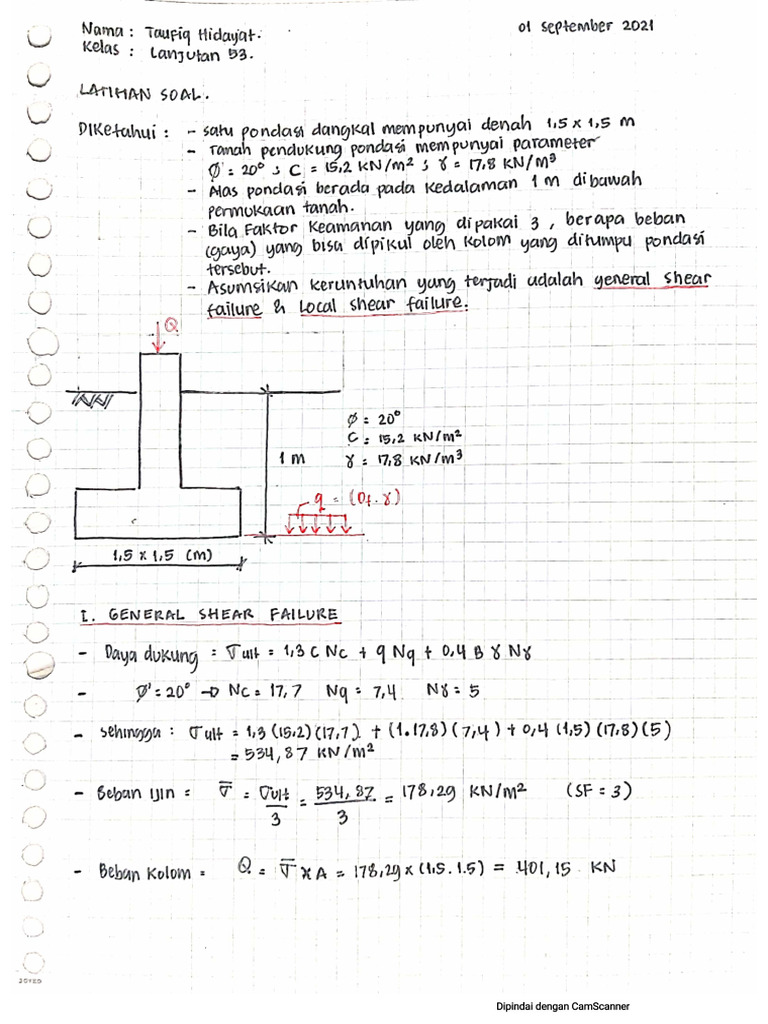 Nama : Taufiq Hidayat.
01 September 2021
Kelas : Lanjutan 53.
LATIHAN SOAL.
Diketahui : - satu pondasi dangkal mempunyai denah 1,5 x 1,5 m
- Tanah pendukung pondasi mempunyai parameter
Ø' = 20° ; C = 15,2 KN/m² ; γ = 17,8 KN/m³
- Alas pondasi berada pada kedalaman 1 m dibawah
permukaan tanah.
- Bila Faktor Keamanan yang dipakai 3 , berapa beban
(gaya) yang bisa dipikul oleh kolom yang ditumpu pondasi
tersebut.
- Asumsikan keruntuhan yang terjadi adalah general shear
failure & Local shear failure.
Q
Ø = 20°
C = 15,2 KN/m²
1 m
γ = 17,8 KN/m³
q = (Df. γ)
1,5 x 1,5 (m)
I. GENERAL SHEAR FAILURE
- Daya dukung = σult = 1,3 C Nc + q Nq + 0,4 B γ Nγ
- Ø' = 20° → Nc = 17,7 Nq = 7,4 Nγ = 5
- sehingga : σult = 1,3 (15,2) (17,7) + (1.17,8) (7,4) + 0,4 (1,5) (17,8) (5)
= 534,87 KN/m²
- Beban ijin = σ̅ = σult/3 = 534,87/3 = 178,29 KN/m² (SF = 3)
- Beban Kolom = Q = σ̅ x A = 178,29 x (1,5 . 1.5) = 401,15 KN
JOYKO
Dipindai dengan CamScanner